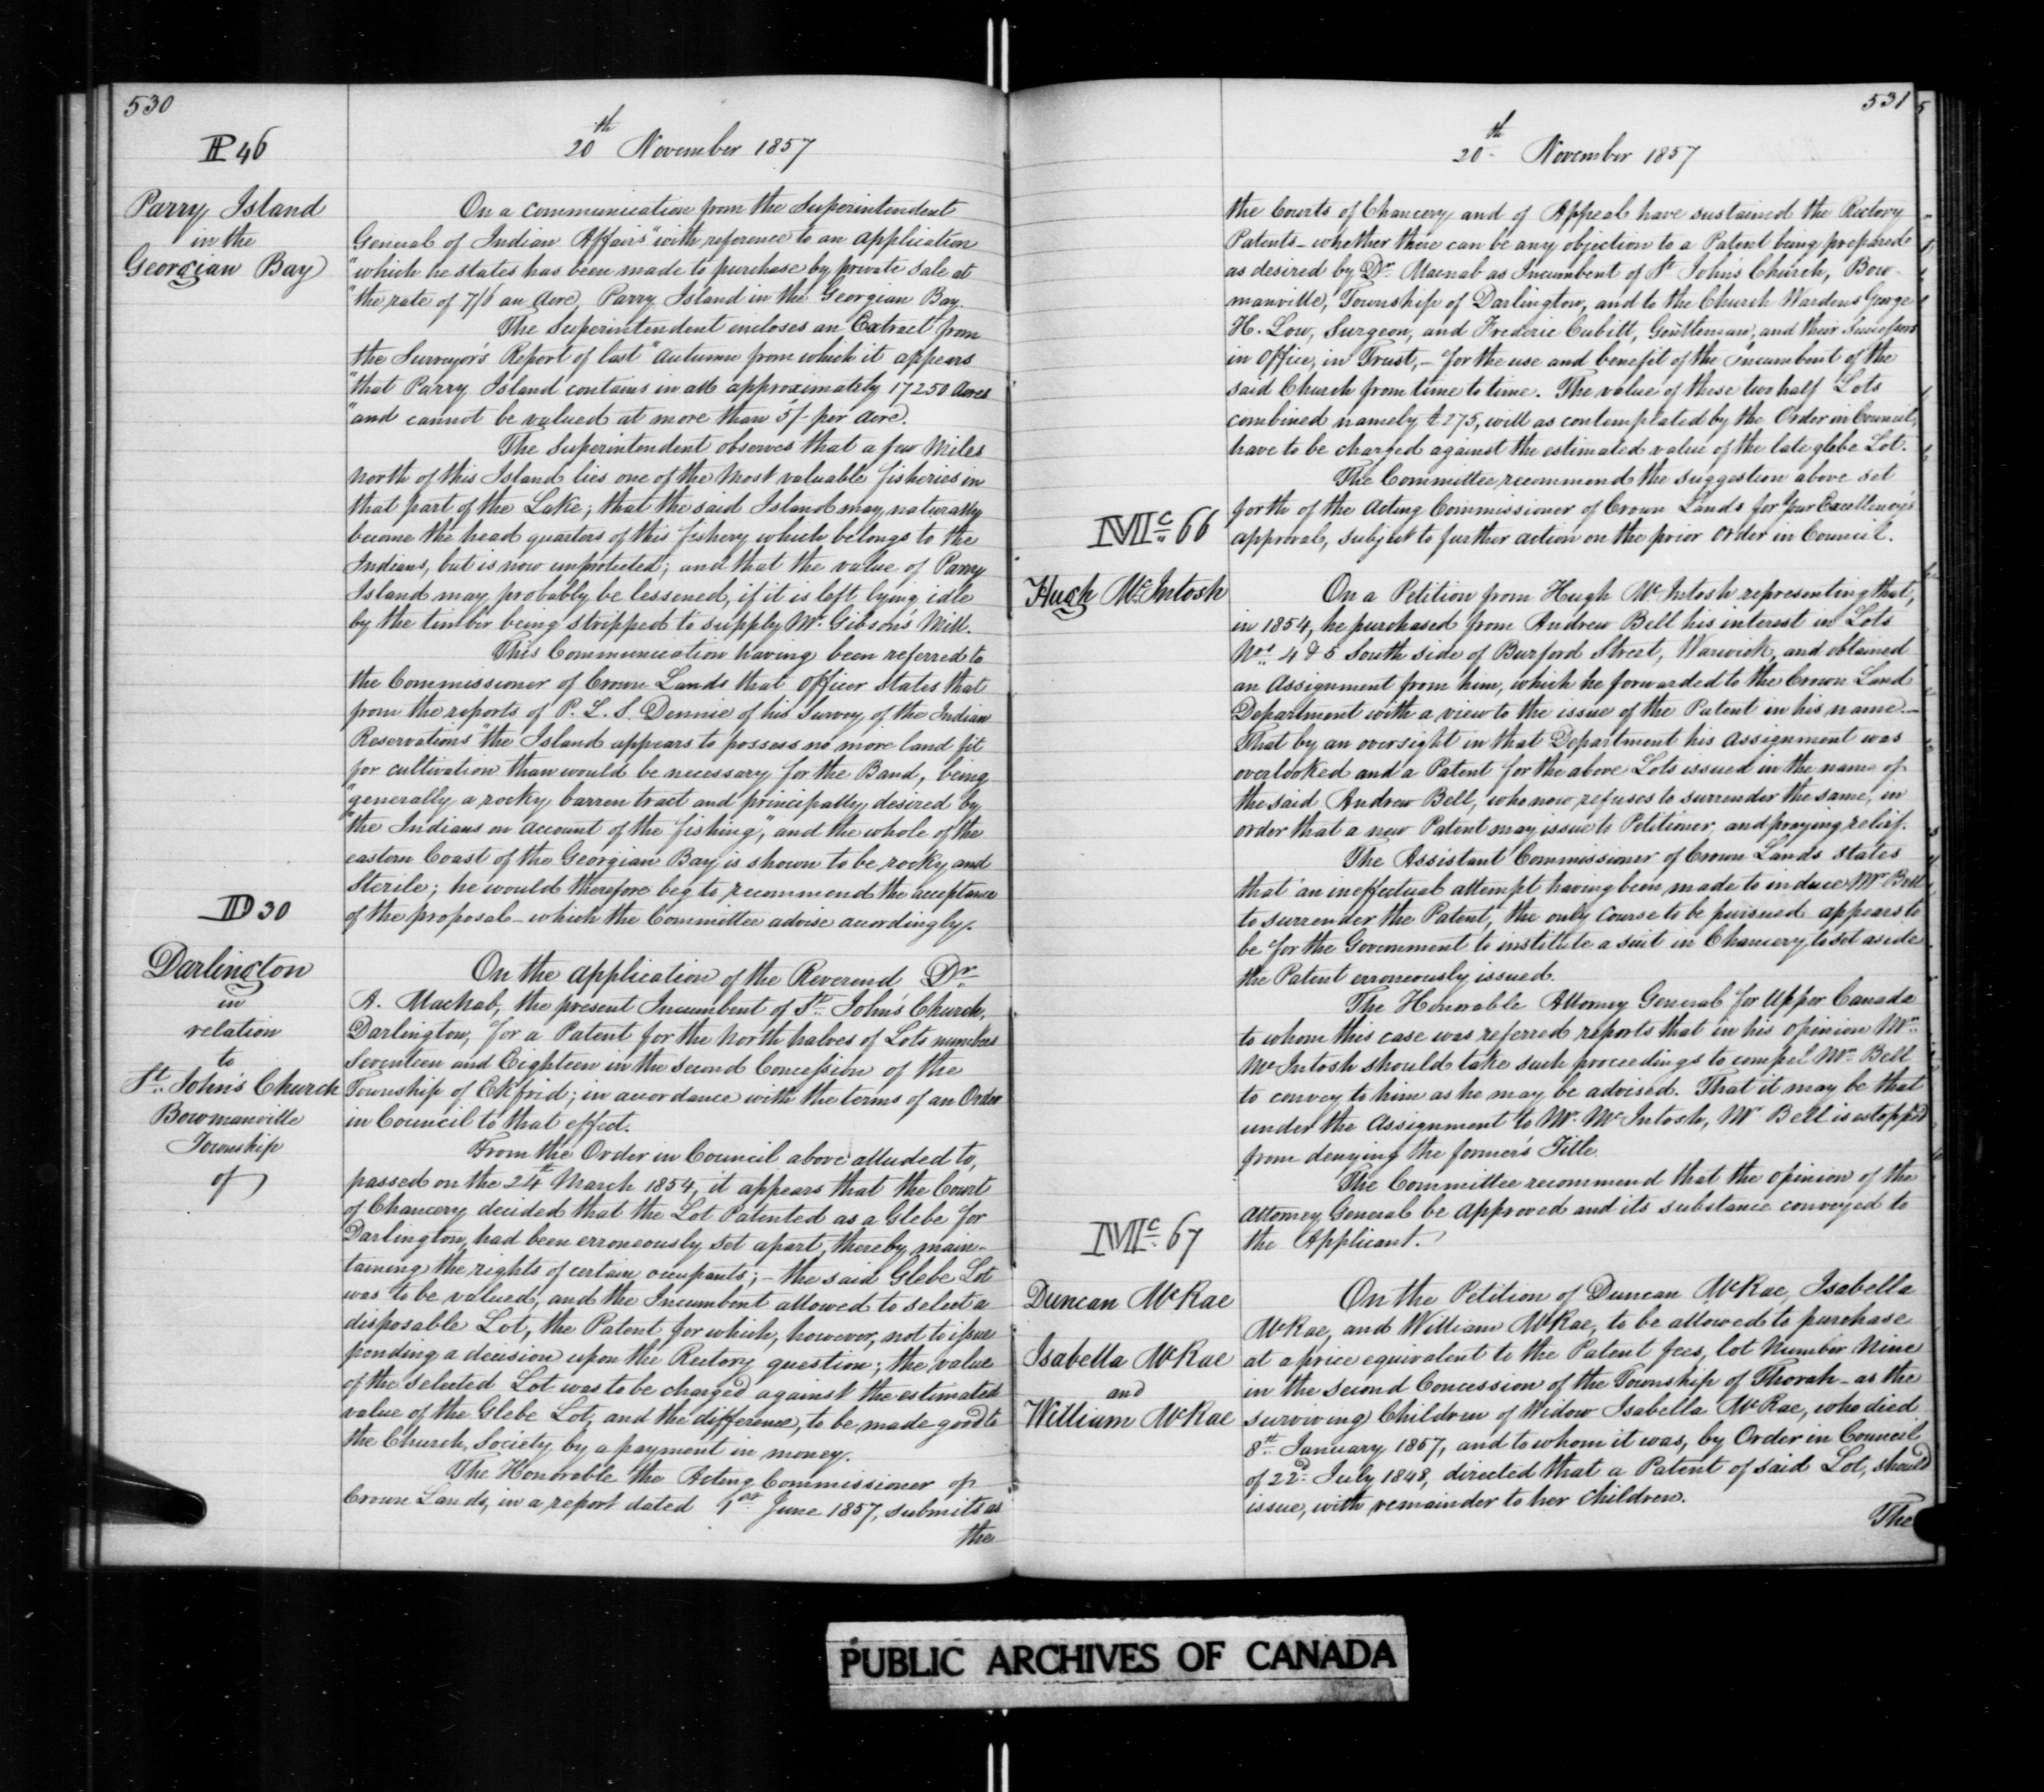 530
20th November 1857
P 46
Parry Island
in the
Georgian Bay
On a communication from the Superintendent
General of Indian Affairs "with reference to an application
"which he states has been made to purchase by private sale at
"the rate of 7/6 an Acre, Parry Island in the Georgian Bay.
The Superintendent encloses an Extract from
the Surveyor's Report of last "Autumn from which it appears
"that Parry Island contains in all approximately 17250 Acres
"and cannot be valued at more than 5/- per Acre.
The Superintendent observes that a few Miles
North of this Island lies one of the most valuable fisheries in
that part of the Lake; that the said Island may naturally
become the head quarters of this fishery which belongs to the
Indians, but is now unprotected; and that the value of Parry
Island may probably be lessened, if it is left lying idle
by the timber being stripped to supply Mr. Gibson's Mill.
This Communication having been referred to
the Commissioner of Crown Lands that Officer States that
from the reports of P. L. S. Dennie of his Survey of the Indian
Reservations "the Island appears to possess no more land fit
for cultivation than would be necessary for the Band, being
"generally a rocky barren tract and principally desired by
"the Indians on account of the fishing", and the whole of the
eastern Coast of the Georgian Bay is shown to be rocky and
Sterile; he would therefore beg to recommend the acceptance
of the proposal - which the Committee advise accordingly.
D 30
Darlington
in
relation
to
St. John's Church
Bowmanville
Township
of
On the application of the Reverend Dr.
A. Macnab, the present Incumbent of St. John's Church,
Darlington, for a Patent for the North halves of Lots numbers
Seventeen and Eighteen in the second Concession of the
Township of Ekfrid; in accordance with the terms of an Order
in Council to that effect.
From the Order in Council above alluded to,
passed on the 24th March 1854, it appears that the Court
of Chancery decided that the Lot Patented as a Glebe for
Darlington, had been erroneously set apart, thereby main-
taining the rights of certain occupants; - the said Glebe Lot
was to be valued, and the Incumbent allowed to select a
disposable Lot, the Patent for which, however, not to issue
pending a decision upon the Rectory question; the value
of the selected Lot was to be charged against the estimated
value of the Glebe Lot, and the difference, to be made good to
the Church Society by a payment in money.
The Honorable the Acting Commissioner of
Crown Lands, in a report dated 1st June 1857, submits as
the
531
20th November 1857
the Courts of Chancery and of Appeal have sustained the Rectory
Patents - whether there can be any objection to a Patent being prepared
as desired by Dr. Macnab as Incumbent of St John's Church, Bow-
manville, Township of Darlington, and to the Church Wardens George
H. Low, Surgeon, and Frederic Cubitt, Gentleman, and their Successors
in Office, in Trust, - for the use and benefit of the Incumbent of the
said Church from time to time. The value of these two half Lots
combined namely £275, will as contemplated by the Order in Council,
have to be charged against the estimated value of the late glebe Lot.
The Committee recommend the suggestion above set
forth of the Acting Commissioner of Crown Lands for Your Excellency's
approval, subject to further action on the prior Order in Council.
Mc 66
Hugh McIntosh
On a Petition from Hugh McIntosh representing that,
in 1854, he purchased from Andrew Bell his interest in Lots
Nos 4 & 5 South side of Burford Street, Warwick, and obtained
an Assignment from him, which he forwarded to the Crown Land
Department with a view to the issue of the Patent in his name -
That by an oversight in that Department his Assignment was
overlooked and a Patent for the above Lots issued in the name of
the said Andrew Bell, who now refuses to surrender the same, in
order that a new Patent may issue to Petitioner, and praying relief.
The Assistant Commissioner of Crown Lands states
that an ineffectual attempt having been made to induce Mr. Bell
to surrender the Patent, the only course to be pursued appears to
be for the Government to institute a suit in Chancery to set aside
the Patent erroneously issued.
The Honorable Attorney General for Upper Canada
to whom this case was referred reports that in his opinion Mr.
McIntosh should take such proceedings to compel Mr. Bell
to convey to him as he may be advised. That it may be that
under the Assignment to Mr. McIntosh, Mr. Bell is estopped
from denying the former's Title.
The Committee recommend that the opinion of the
Attorney General be approved and its substance conveyed to
the Applicant.
Mc 67
Duncan McRae
Isabella McRae
and
William McRae
On the Petition of Duncan McRae, Isabella
McRae, and William McRae, to be allowed to purchase
at a price equivalent to the Patent fees, lot Number Nine
in the second Concession of the Township of Thorah - as the
surviving Children of Widow Isabella McRae, who died
8th January 1857, and to whom it was, by Order in Council
of 22d July 1848, directed that a Patent of said Lot, should
issue, with remainder to her children.
The
PUBLIC ARCHIVES OF CANADA